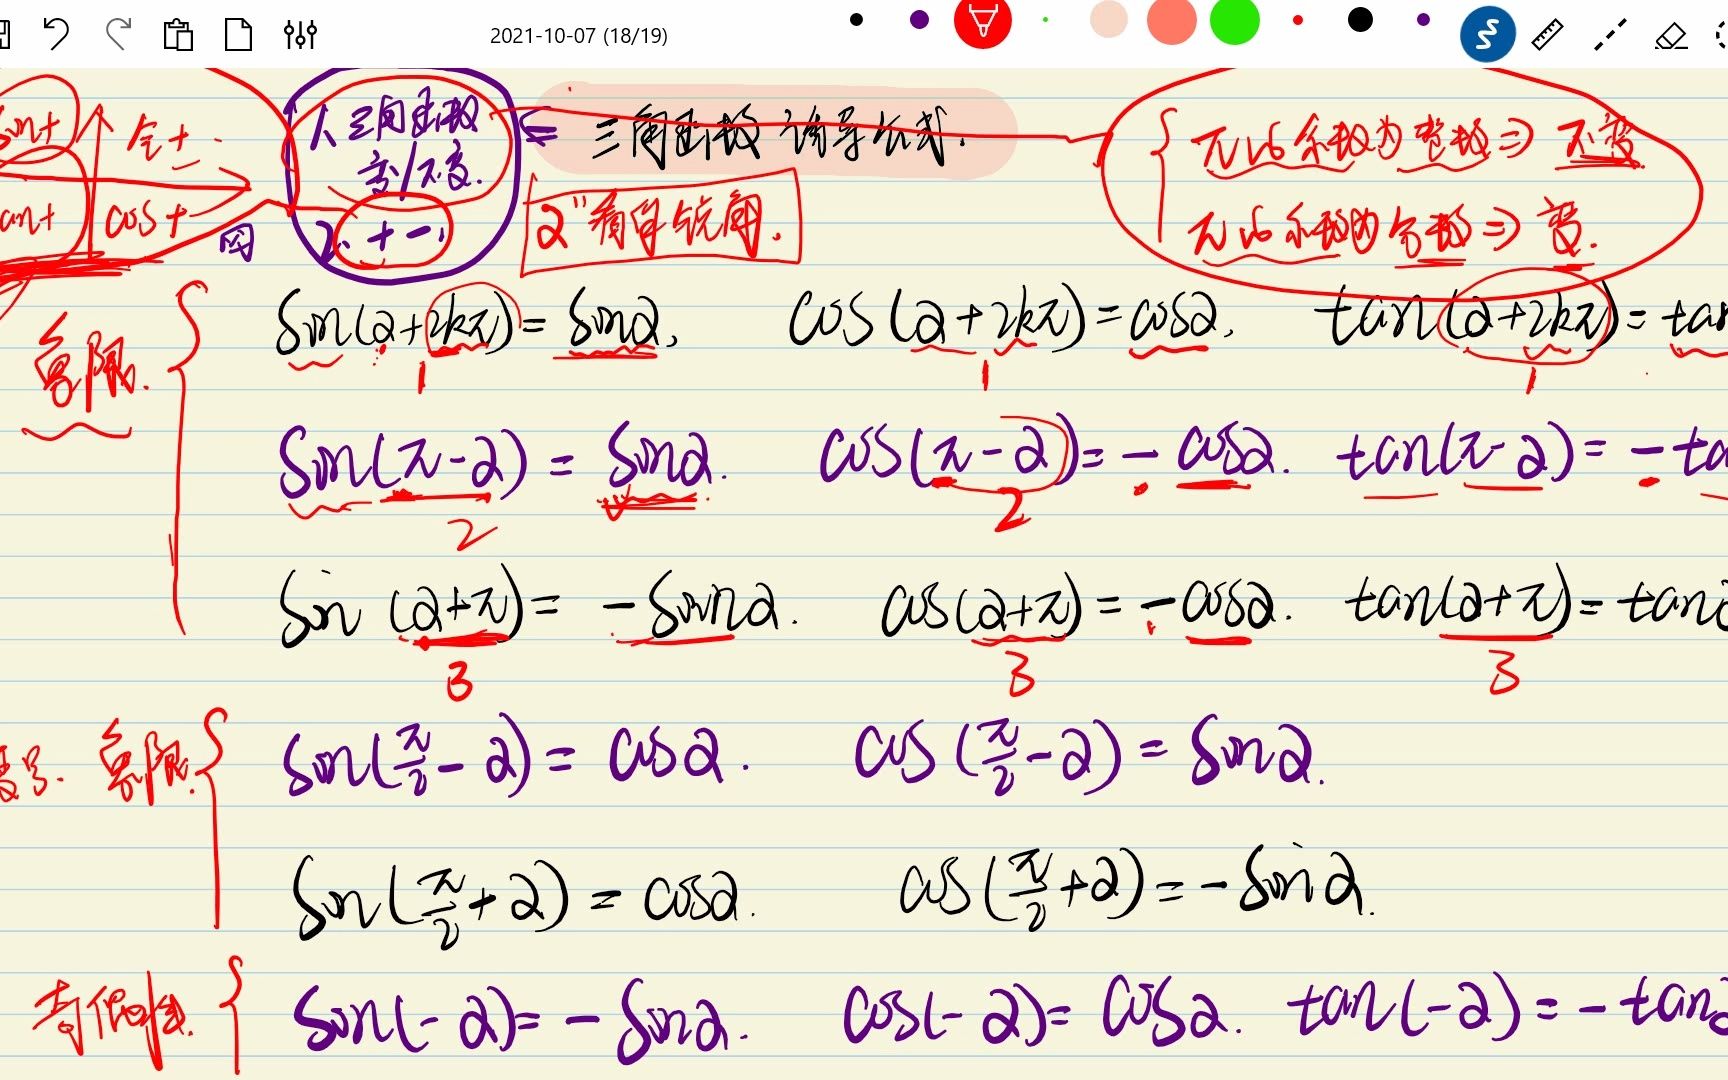 2021-10-07 (18/19)
sin+ 全+
tan+ cos+
1、三角函数
变/不变.
2. + -.
四
三角函数诱导公式.
"α"看成锐角.
π的系数为整数⇒不变
π的系数为分数⇒变.
象限.
sin(α+2kπ)=sinα, cos(α+2kπ)=cosα, tan(α+2kπ)=tan
1 1 1
sin(π-α)=sinα. cos(π-α)=-cosα. tan(π-α)=-ta
2 2
sin(α+π)=-sinα. cos(α+π)=-cosα. tan(α+π)=tanα
3 3 3
象限.
sin(π/2-α)=cosα. cos(π/2-α)=sinα.
sin(π/2+α)=cosα. cos(π/2+α)=-sinα.
奇偶性.
sin(-α)=-sinα. cos(-α)=cosα. tan(-α)=-tanα